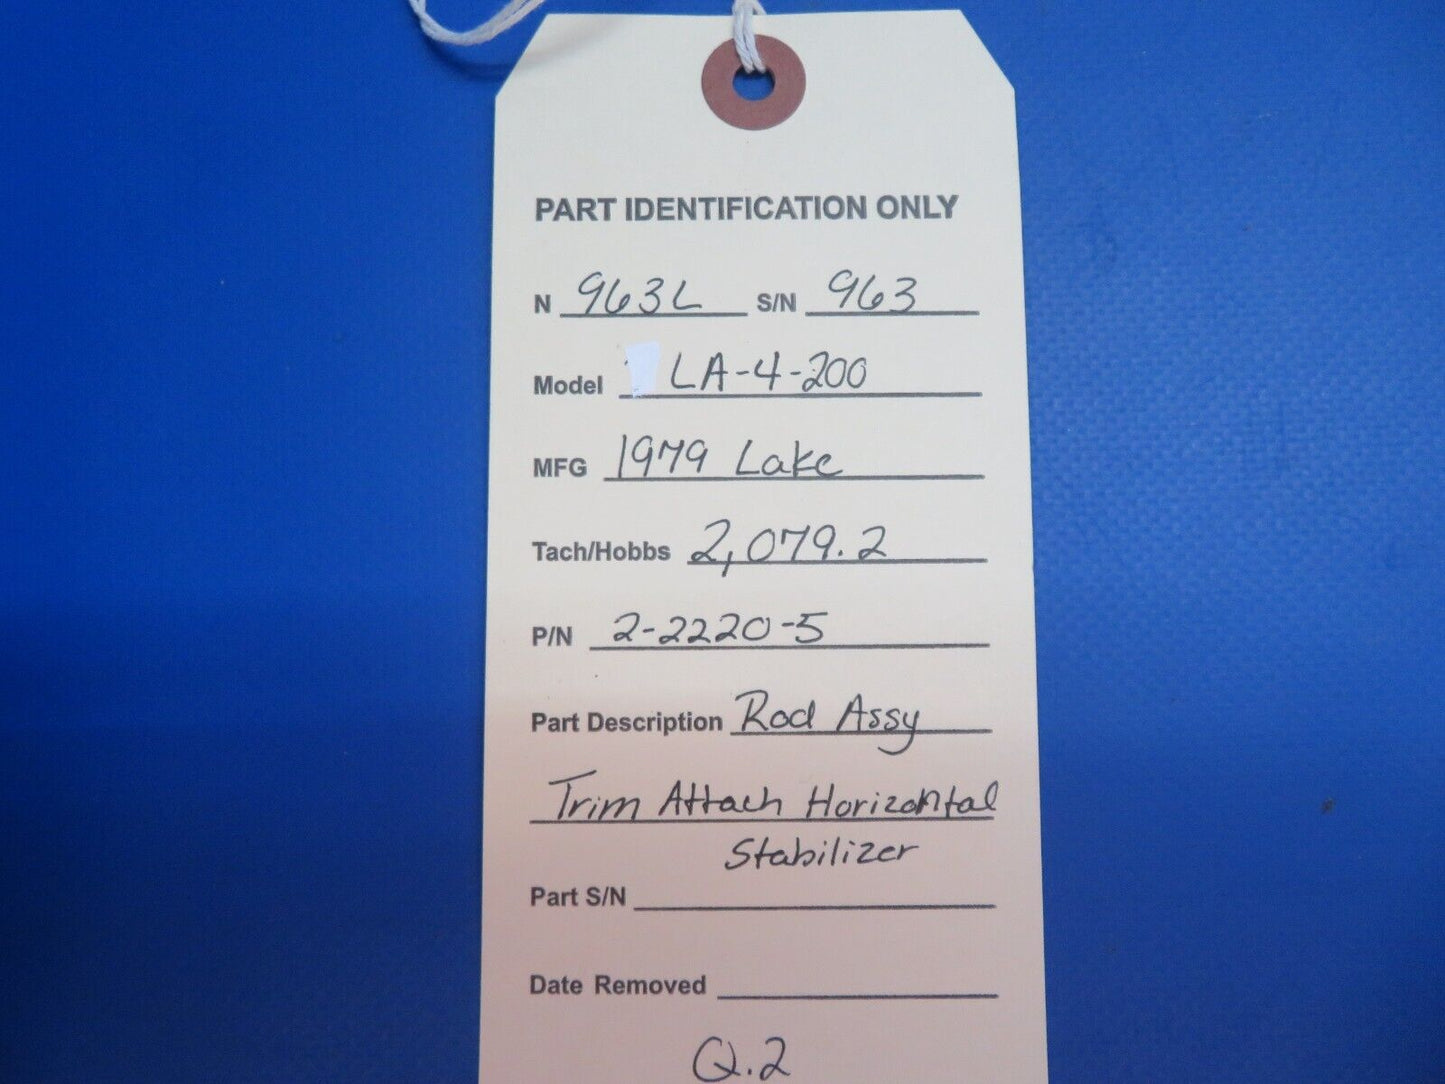 PART IDENTIFICATION ONLY
N 963L S/N 963
Model LA-4-200
MFG 1979 Lake
Tach/Hobbs 2,079.2
P/N 2-2220-5
Part Description Rod Assy
Trim Attach Horizontal
Stabilizer
Part S/N
Date Removed
Q.2